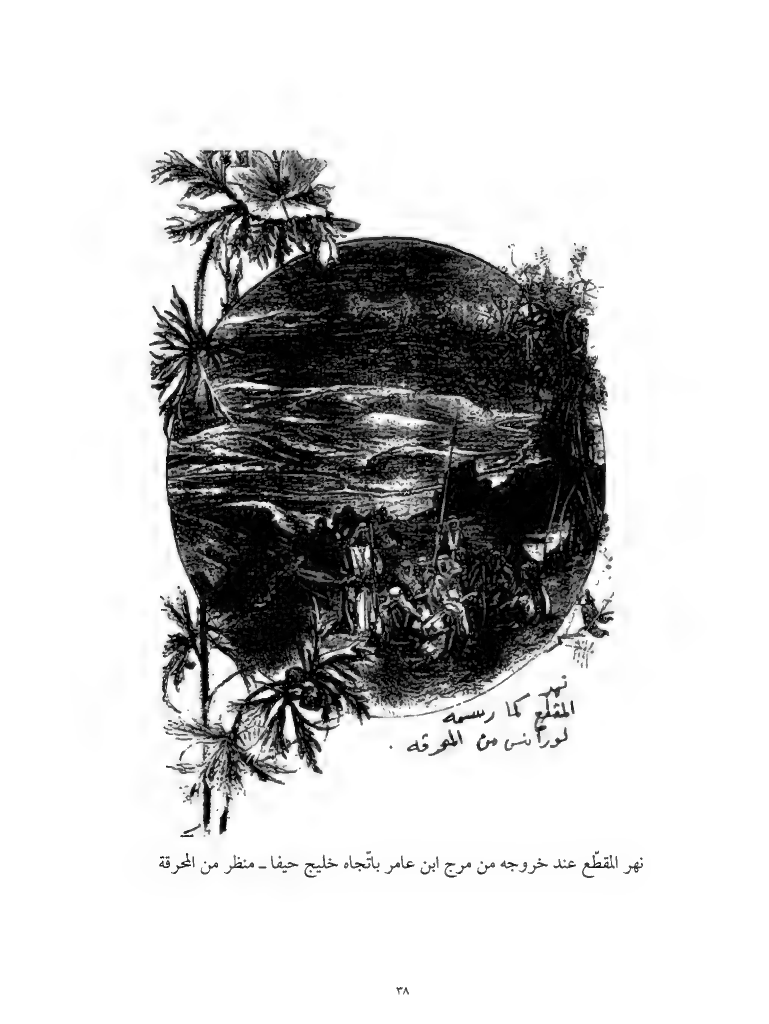 نهر
المقطّع كما رسمه
لورانس من المحرقه .
نهر المقطّع عند خروجه من مرج ابن عامر باتّجاه خليج حيفا ـ منظر من المحرقة
٣٨